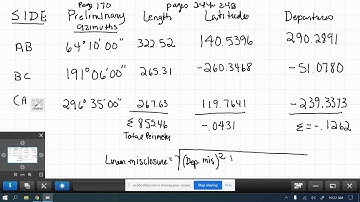 Pag 170 pages 244-248
SIDE Preliminary azimuths Length Latitudes Departures
AB 64°10'00" 322.52 140.5396 290.2891
BC 191°06'00" 265.31 -260.3468 -51.0780
CA 296°35'00" 267.63 119.7641 -239.3373
Σ 855.46 -.0431 Σ = -.1262
Total Perimeter
Linear misclosure = √(Dep. mis)²
Stop sharing
10:22 AM